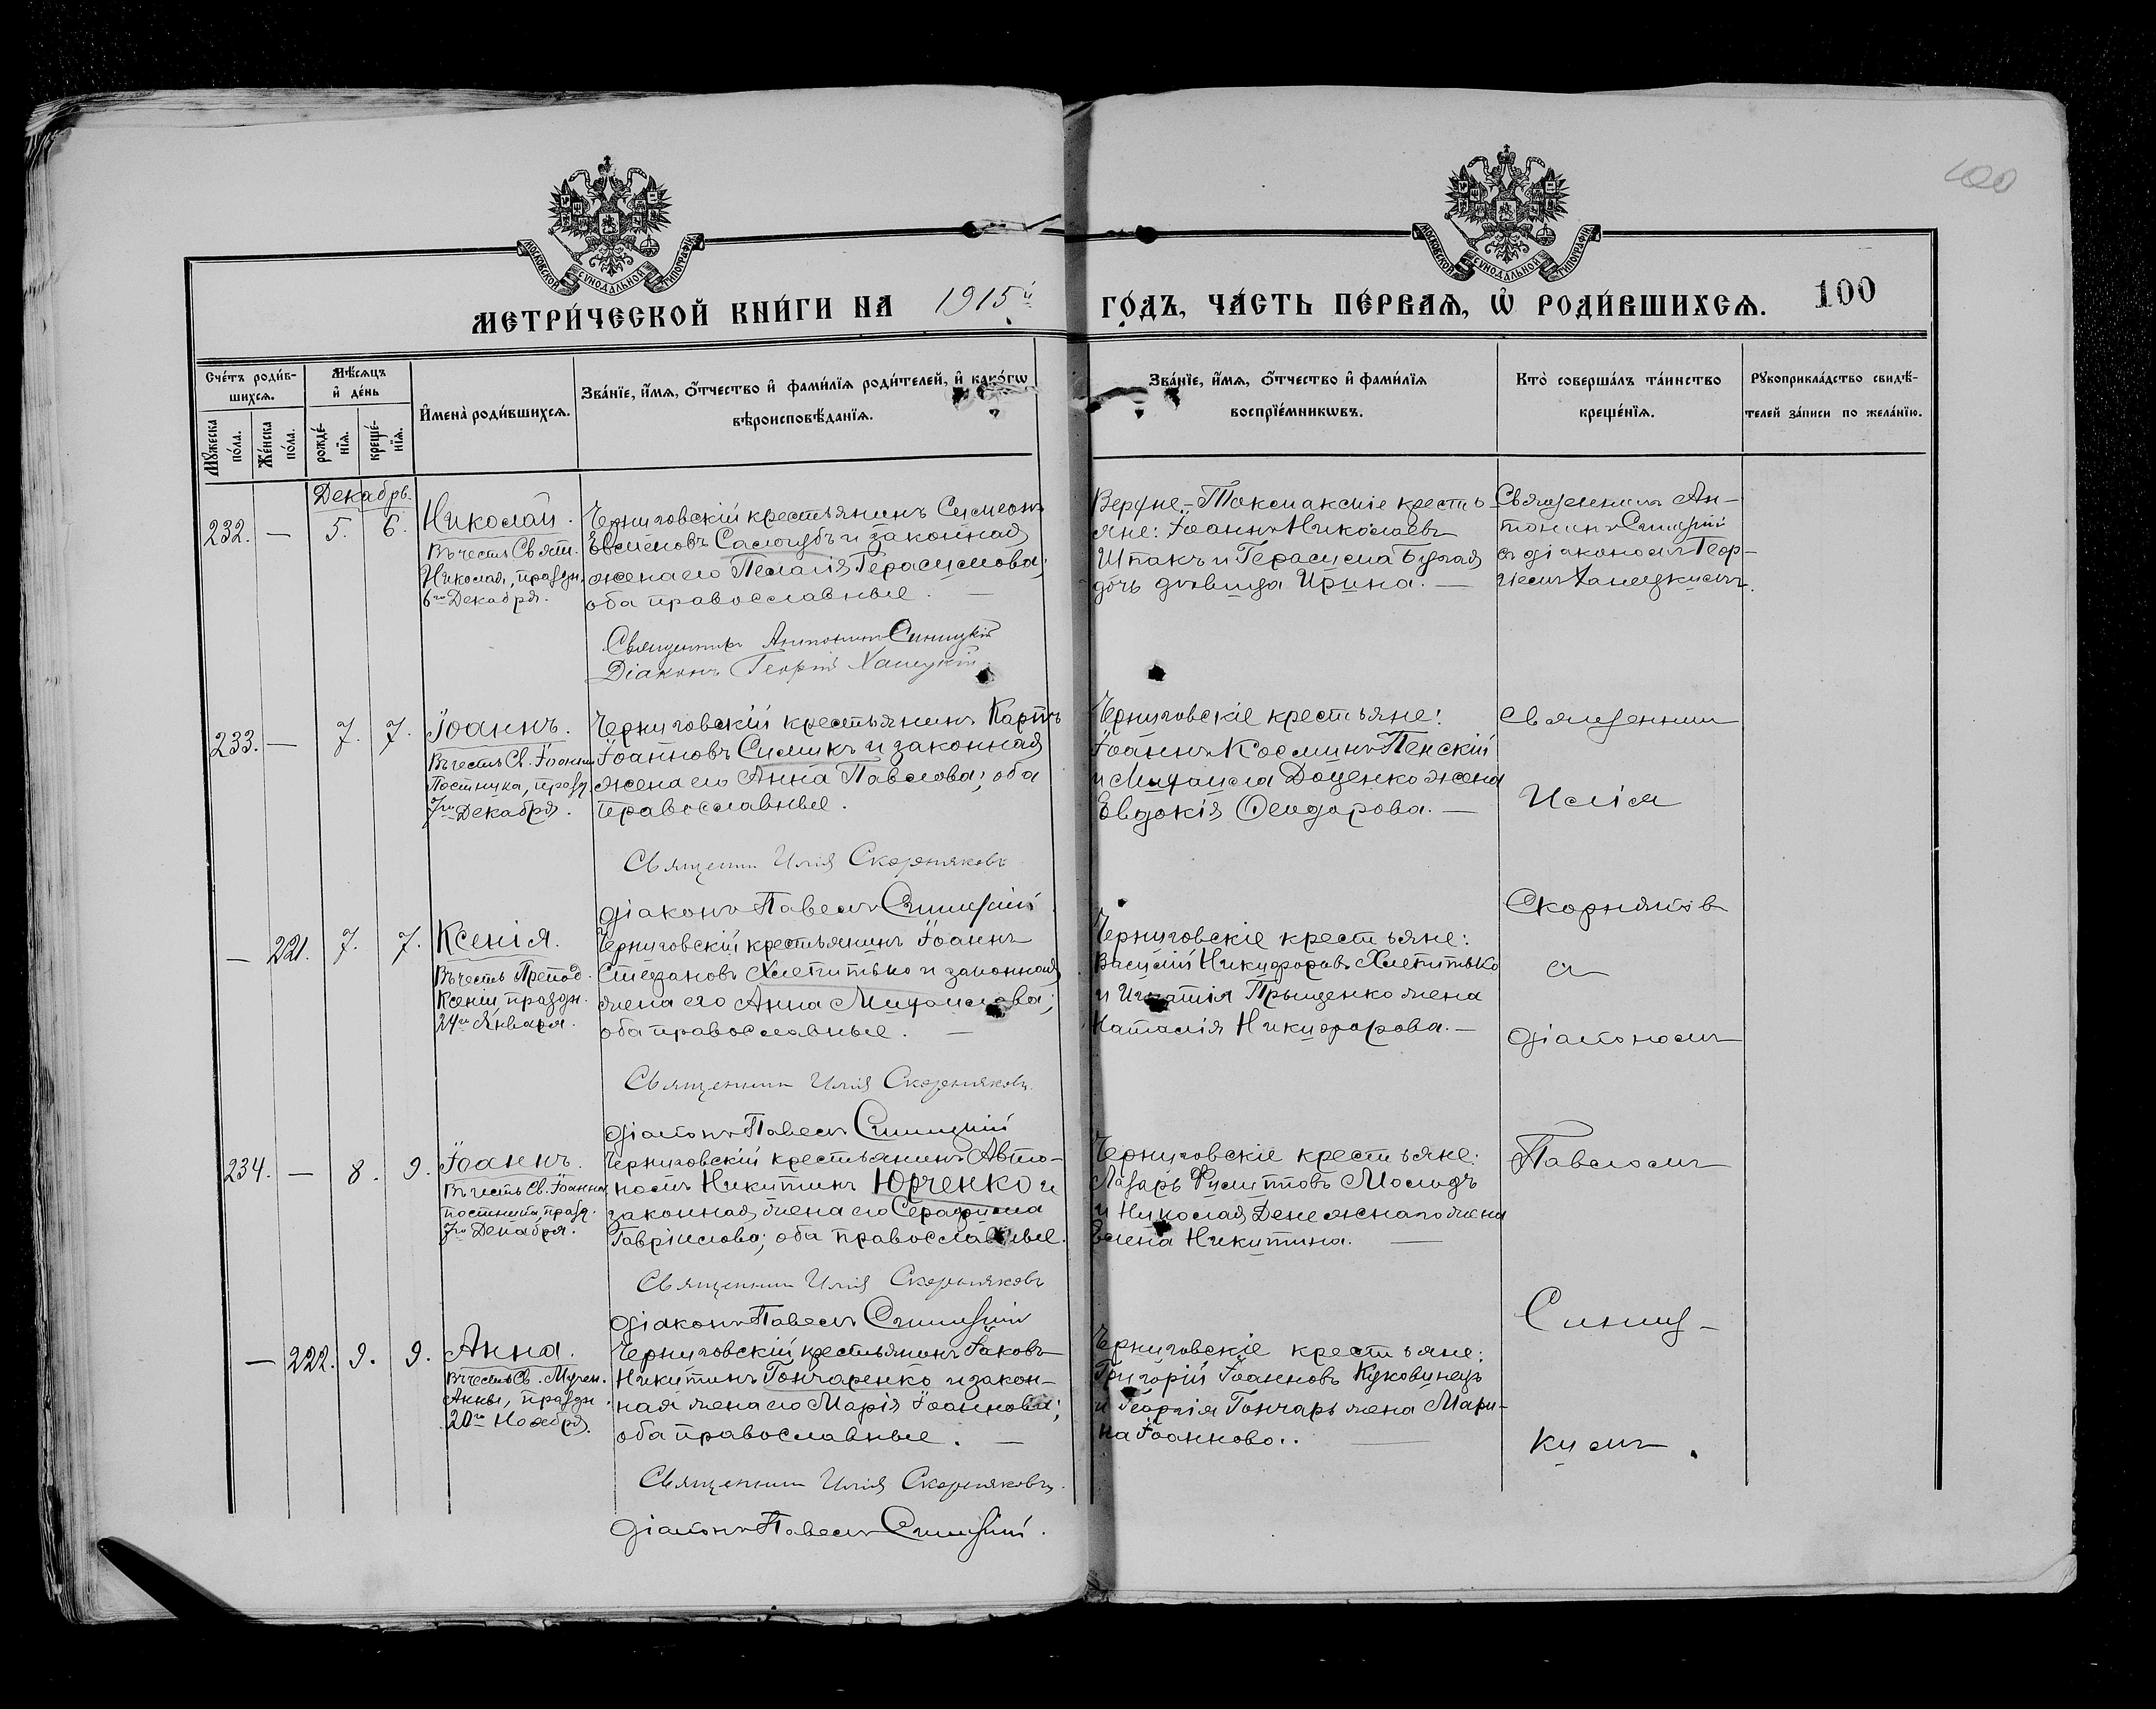 100
МОСКОВСКОЙ СѴНОДАЛЬНОЙ ТИПОГРАФІИ
МОСКОВСКОЙ СѴНОДАЛЬНОЙ ТИПОГРАФІИ
МЕТРИ́ЧЕСКОЙ КНИ́ГИ НА 1915й ГО́ДЪ, ЧА́СТЬ ПЕ́РВАѦ, Ѡ҆ РОДИ́ВШИХСѦ. 100
Сче́тъ роди́в-
шихсѧ.
Мꙋ́жеска по́ла.
Же́нска по́ла.
Мѣ́сѧцъ
и҆ де́нь
рожде́-
нїѧ.
креще́-
нїѧ.
И҆мена̀ роди́вшихсѧ.
Зва́нїе, и҆́мѧ, ѻ҆́тчество и҆ фами́лїѧ роди́телей, и҆ како́гѡ
вѣроисповѣ́данїѧ.
Зва́нїе, и҆́мѧ, ѻ҆́тчество и҆ фами́лїѧ
воспрїе́мникѡвъ.
Кто̀ соверша́лъ та́инство
креще́нїѧ.
Рꙋкоприкла́дство свидѣ́-
телей за́писи по жела́нїю.
Декабрь.
232. — 5. 6.
Николай.
Въ честь Свят.
Николая, праздн.
6го Декабря.
Черниговскій крестьянинъ Симеонъ
Евсіеновъ Самогубъ и законная
жена его Пелагія Герасимова;
оба православные. —
Священникъ Антонинъ Синицкій
Діаконъ Георгій Ханецкій.
Верхне-Токмакскіе кресть-
яне: Іоаннъ Николаевъ
Шпакъ и Герасима Бугая
дочь дѣвица Ирина. —
Священникъ Ан-
тонинъ Синицкій
съ діакономъ Геор-
гіемъ Ханецкимъ.
233. — 7. 7.
Іоаннъ.
Въ честь Св. Іоанна
Постника, празд.
7го Декабря.
Черниговскій крестьянинъ Карпъ
Іоанновъ Симикъ и законная
жена его Анна Павлова; оба
православные.
Священникъ Илія Скорняковъ
діаконъ Павелъ Синицкій
Черниговскіе крестьяне:
Іоаннъ Косминъ Пенскій
и Михаила Доценко жена
Евдокія Ѳеодорова. —
Священникъ
Илія
Скорняковъ
съ
діакономъ
Павломъ
Синиц-
кимъ.
— 221. 7. 7.
Ксенія.
Въ честь Препод.
Ксеніи, праздн.
24го Января.
Черниговскій крестьянинъ Іоаннъ
Стефановъ Хлепитько и законная
жена его Анна Михаилова;
оба православные. —
Священникъ Илія Скорняковъ.
діаконъ Павелъ Синицкій
Черниговскіе крестьяне:
Василій Никифоровъ Хлепитько
и Игнатія Прыщенко жена
Наталія Никифорова. —
234. — 8. 9.
Іоаннъ.
Въ честь Св. Іоанна
постника, празд.
7го Декабря.
Черниговскій крестьянинъ Авто-
номъ Никитинъ Юрченко и
законная жена его Серафима
Гавріилова; оба православные.
Священникъ Илія Скорняковъ
діаконъ Павелъ Синицкій
Черниговскіе крестьяне:
Лазарь Филипповъ Молидъ
и Николая Денежнаго жена
Елена Никитина. —
— 222. 9. 9.
Анна.
Въ честь Св. Мучен.
Анны, праздн.
20го Ноября.
Черниговскій крестьянинъ Іаковъ
Никитинъ Гончаренко и закон-
ная жена его Марія Іоаннова;
оба православные. —
Священникъ Илія Скорняковъ.
діаконъ Павелъ Синицкій.
Черниговскіе крестьяне:
Григорій Іоанновъ Куковинецъ
и Георгія Гончаръ жена Мари-
на Іоаннова. —